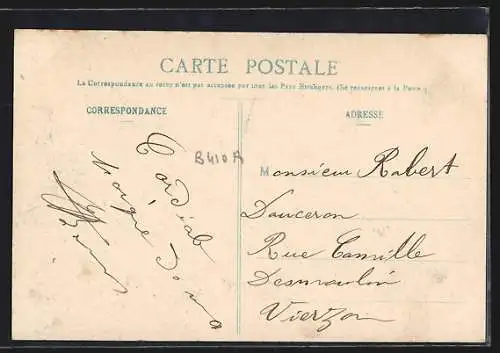 CARTE POSTALE
La Correspondance au recto n'est pas acceptée par tous les Pays Etrangers. (Se renseigner à la Poste.)
CORRESPONDANCE
ADRESSE
B410A
Cordiale
Monsieur Robert
Douceron
Rue Camille
Desmoulin
Vierzon